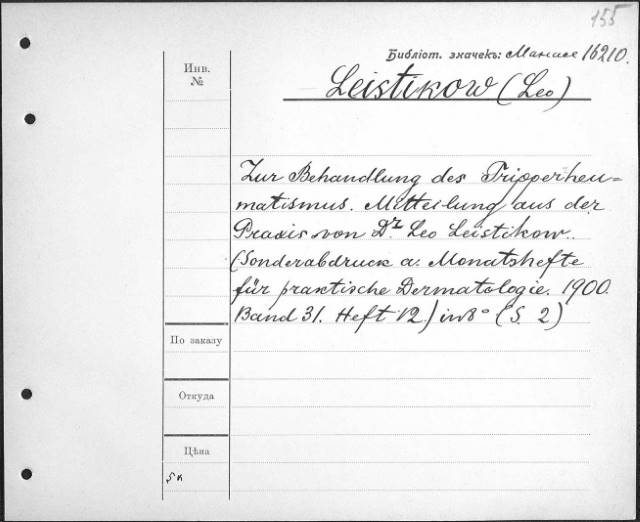 155
Библіот. значекъ: 16210.
Инв.
№
Leistikow (Leo)
Zur Behandlung des Tripperheu=
matismus. Mitteilung aus der
Praxis von Dr Leo Leistikow.
(Sonderabdruck a. Monatshefte
für praktische Dermatologie. 1900.
Band 31. Heft 12) in 8° (S. 2)
По заказу
Откуда
Цѣна
5к